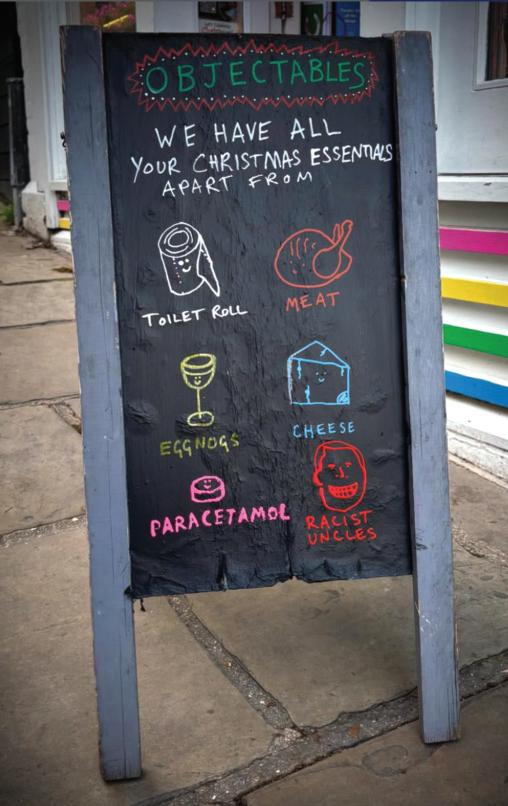 OBJECTABLES
WE HAVE ALL
YOUR CHRISTMAS ESSENTIALS
APART FROM
TOILET ROLL
MEAT
EGGNOGS
CHEESE
PARACETAMOL
RACIST
UNCLES